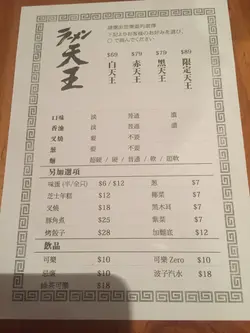 ラーメン
天王
$69 $79 $79 $89
白天王 赤天王 黑天王 限定天王
口味 淡 普通 濃
香油 淡 普通 濃
叉燒 要 不要
蔥 要 不要
麵 超硬 / 硬 / 普通 / 軟 / 超軟
另加選項
味蛋 (半/全只) $6 / $12 蔥 $7
芝士年糕 $12 $7
叉燒 $18 黑木耳 $7
豚角煮 $25 紫菜 $7
烤餃子 $28 加麵底 $12
飲品
可樂 $10 可樂 Zero $10
忌廉 $10 波子汽水 $18
綠茶可樂 $18